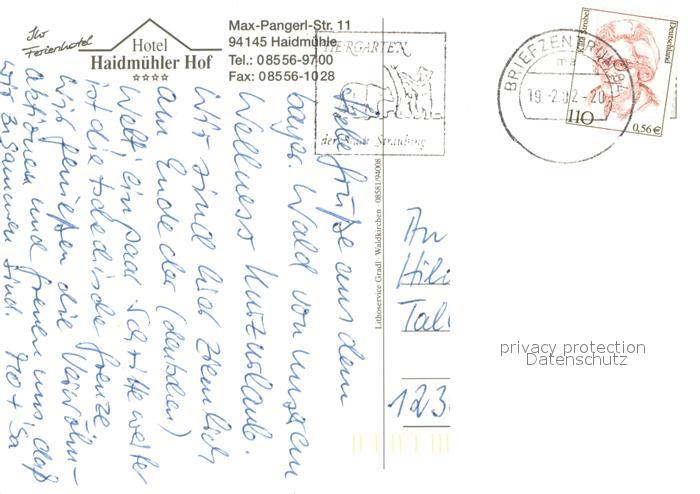 Ihr
Ferienhotel
Hotel
Haidmühler Hof
Max-Pangerl-Str. 11
94145 Haidmühle
Tel.: 08556-9700
Fax: 08556-1028
TIERGARTEN
der Stadt Straubing
BRIEFZENTRUM 94
ma
19.-2.02-20
Käte Strobel
Deutschland
110
0,56 €
Liebe Grüße aus dem
bayer. Wald von unserem
Wellness Kurzurlaub.
Wir sind hier ziemlich
am Ende der (deutschen)
Welt, ein paar Schritte weiter
ist die tschechische Grenze.
Wir genießen die Verwöhn-
aktionen und freuen uns, daß
wir zusammen sind.
Lithoservice Gradl Waldkirchen 08581/94008
An
Hil
Tal
123
privacy protection
Datenschutz